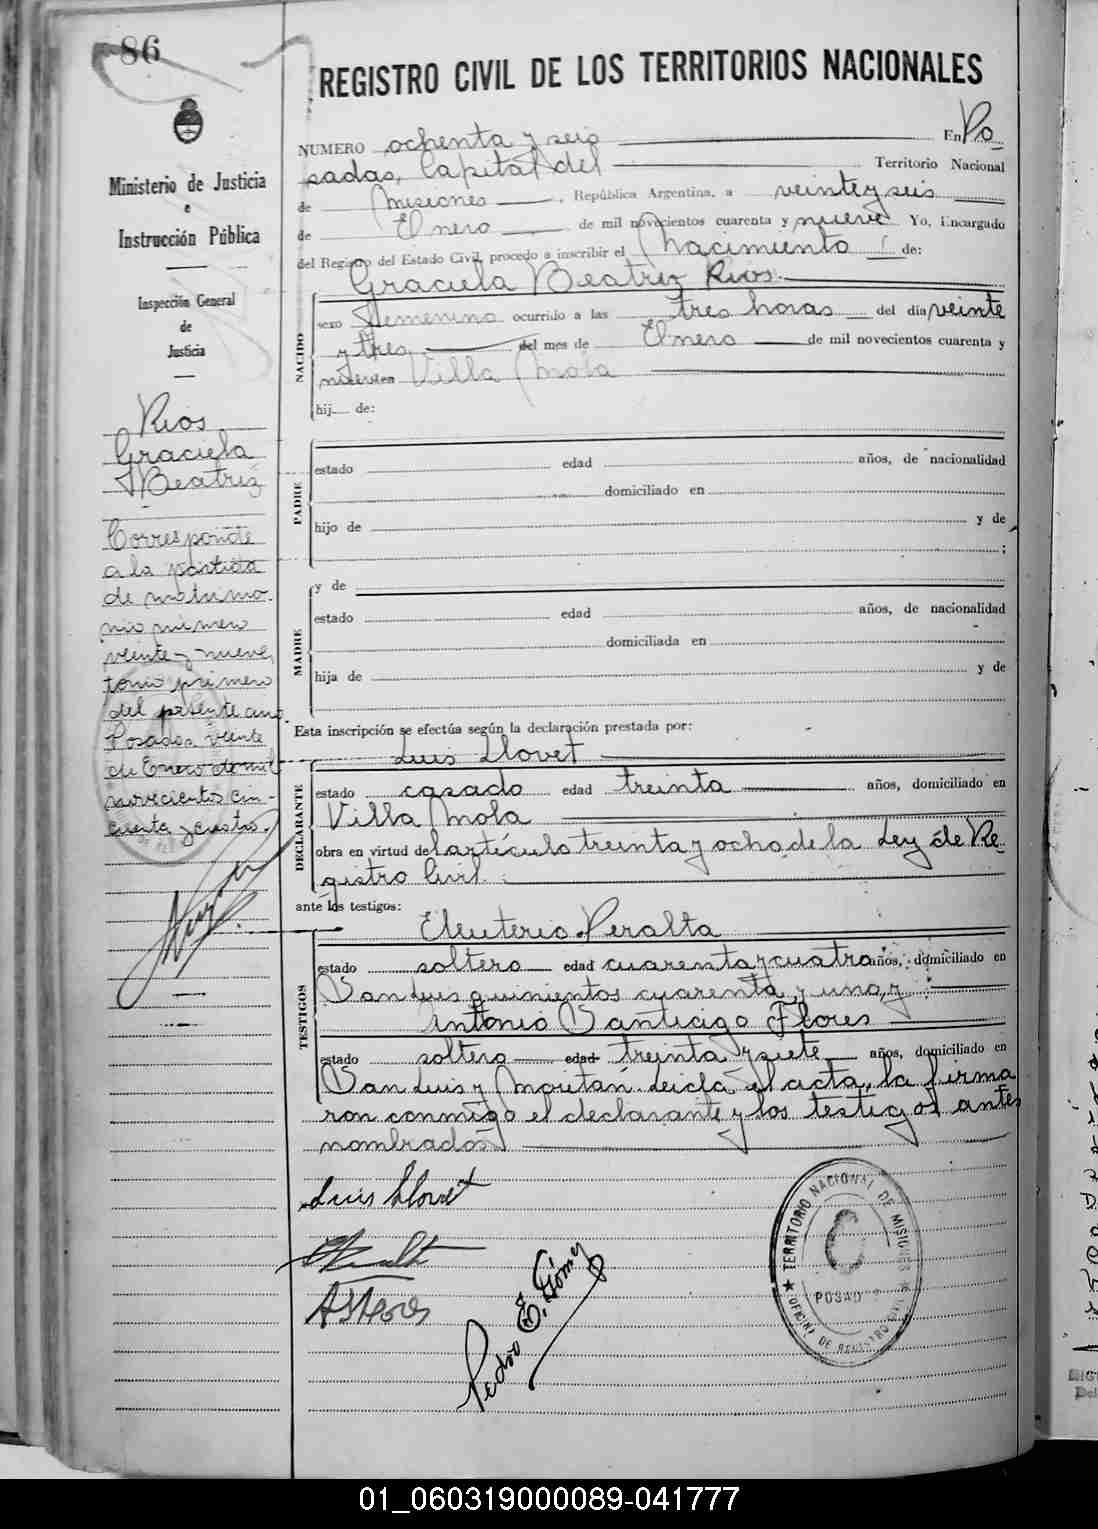 86
REGISTRO CIVIL DE LOS TERRITORIOS NACIONALES
Ministerio de Justicia
e
Instrucción Pública
Inspección General
de
Justicia
Rios
Graciela
Beatriz
Corresponde
a la partida
de matrimo
nio número
veinte y nueve,
tomo primero
del presente año.
Posadas, veinte
de Enero de mil
novecientos cin-
cuenta y cuatro.
NUMERO ochenta y seis En Po
sadas, Capital del Territorio Nacional
de Misiones, República Argentina, a veinte y seis
de Enero de mil novecientos cuarenta y nueve Yo, Encargado
del Registro del Estado Civil, procedo a inscribir el Nacimiento de:
Graciela Beatriz Rios.
NACIDO
sexo Femenino ocurrido a las tres horas del día veinte
y tres del mes de Enero de mil novecientos cuarenta y
nueve en Villa Mola
hij de:
PADRE
estado edad años, de nacionalidad
domiciliado en
hijo de y de
;
MADRE
y de
estado edad años, de nacionalidad
domiciliada en
hija de y de
Esta inscripción se efectúa según la declaración prestada por:
Luis Llovet
DECLARANTE
estado casado edad treinta años, domiciliado en
Villa Mola
obra en virtud del artículo treinta y ocho de la Ley de Re
gistro Civil.
ante los testigos:
TESTIGOS
Eleuterio Peralta
estado soltero edad cuarenta y cuatro años, domiciliado en
San Luis quinientos cuarenta y uno, y
Antonio Santiago Flores
estado soltero edad treinta y siete años, domiciliado en
San Luis y Moritán. Leida el acta, la firma
ron conmigo el declarante y los testigos antes
nombrados
Luis Llovet
EPeralta
ASFlores
Pedro E. Gómez
TERRITORIO NACIONAL DE MISIONES
POSADAS
OFICINA DE REGISTRO CIVIL
01_060319000089-041777